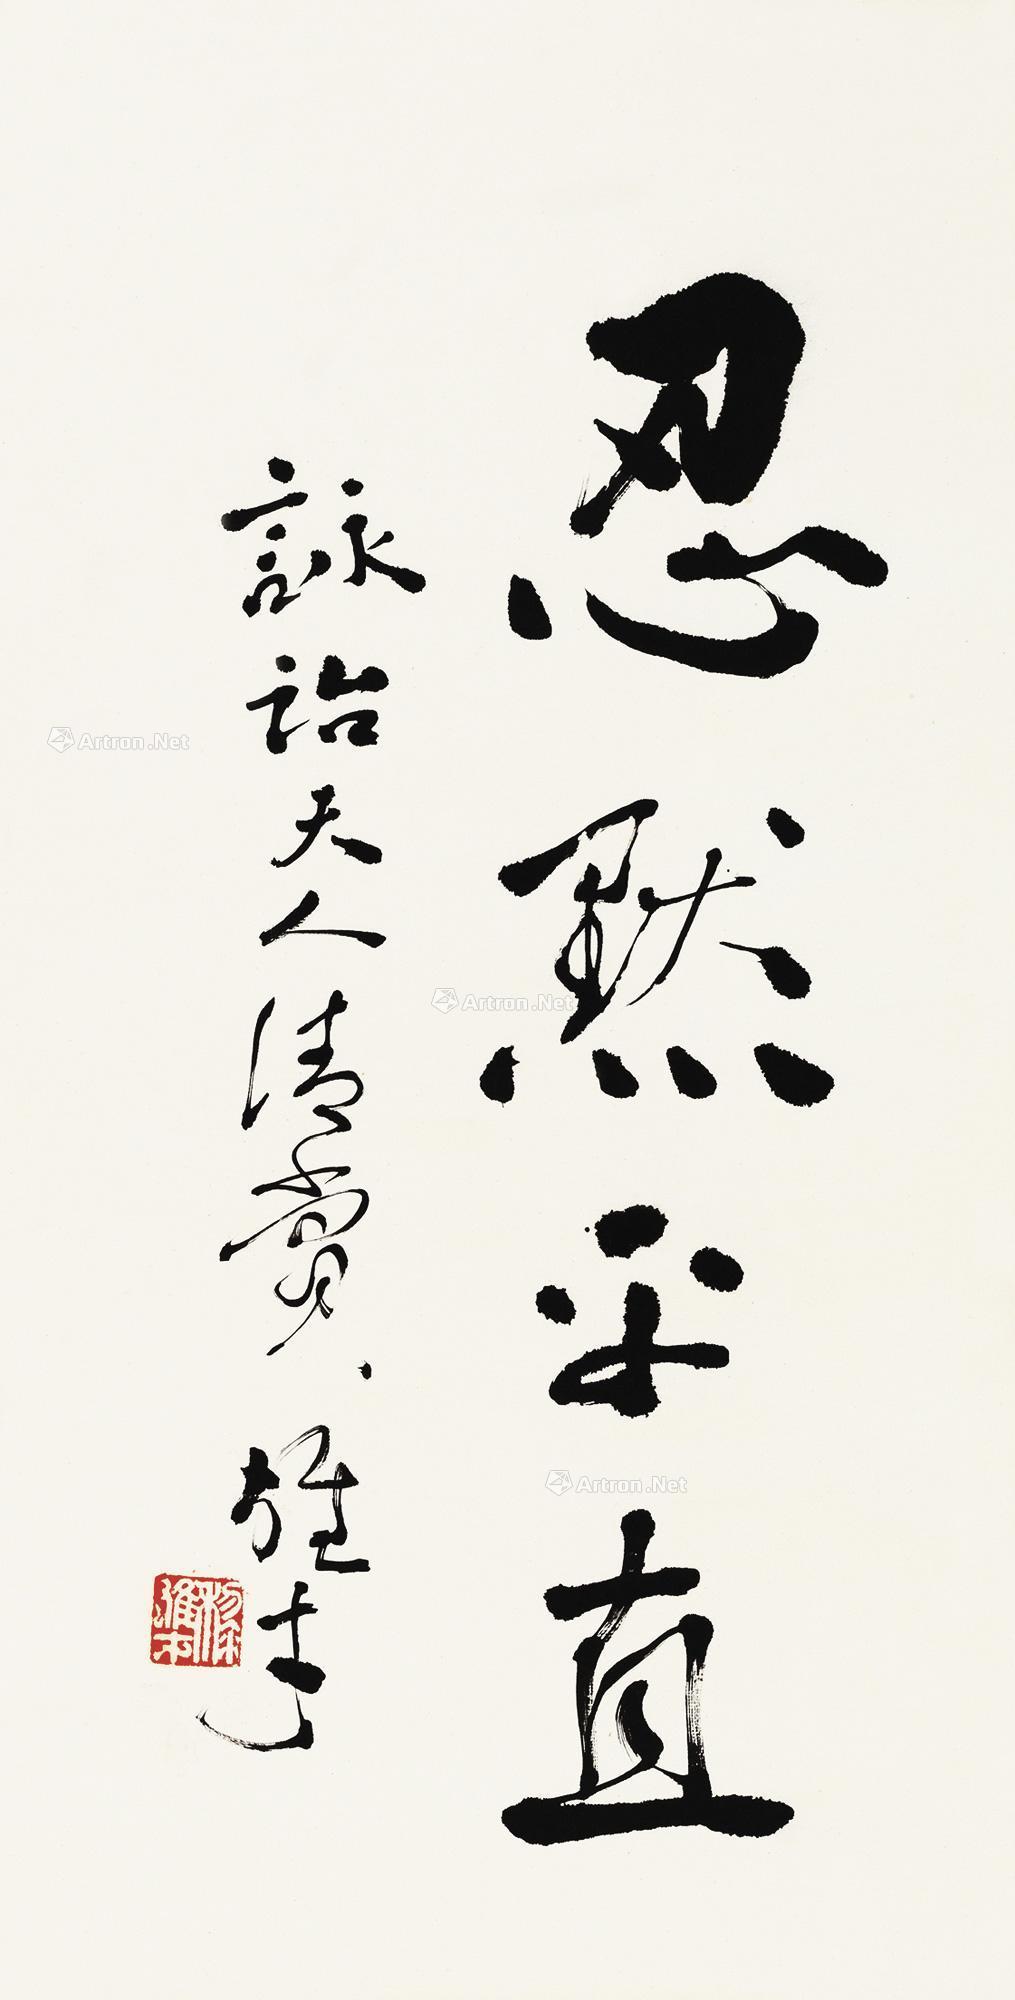 忍默平直
詠詒夫人清賞、雄才
楊雄才
Artron.Net
Artron.Net
Artron.Net